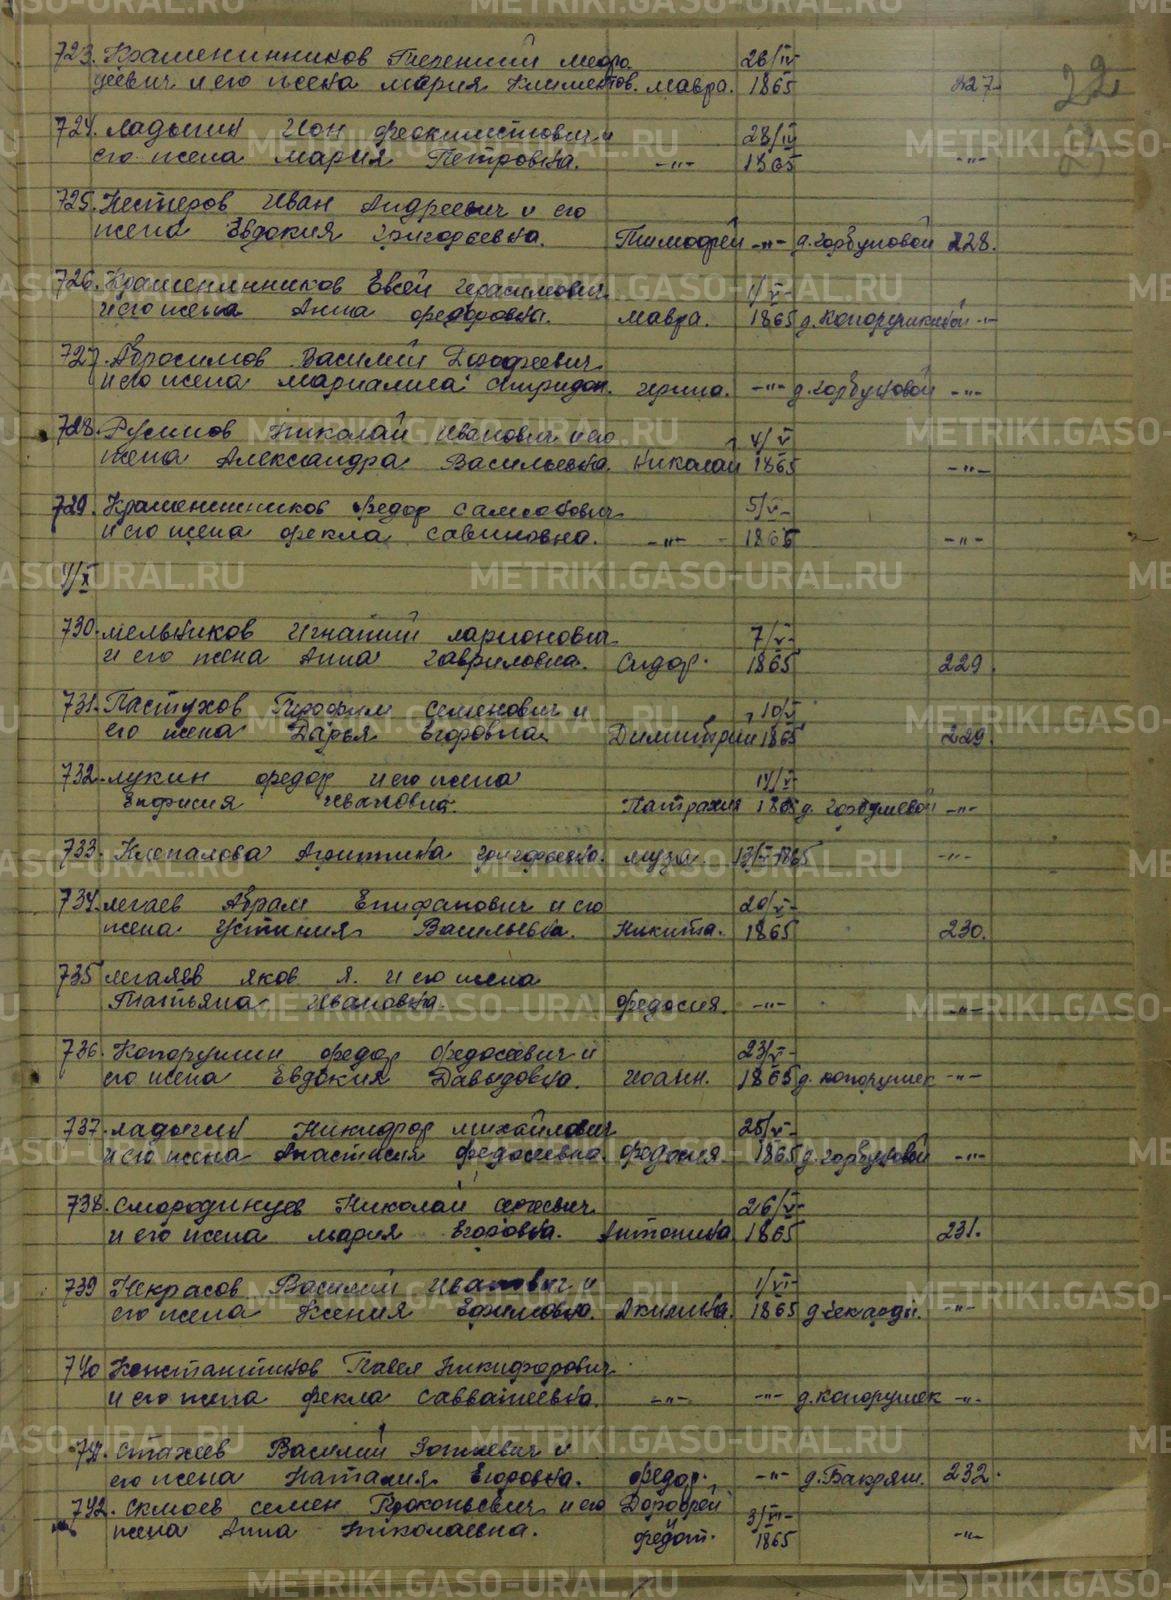 723. Крашенинников Терентий Медо-
цеевич и его жена Мария Климентов. Мавра. 26/IV 1865 227.
724. Ладыгин Ион Феоктистович и
его жена Мария Петровна. -"- 28/IV 1865 -"-
725. Нестеров Иван Андреевич и его
жена Евдокия Григорьевна. Тимофей -"- д. Горбуновой 228.
726. Крашенинников Евсей Герасимович
и его жена Анна Федоровна. Мавра. 1/V- 1865 -"-
727. Абросимов Василий Дорофеевич
и его жена Спиридон. Ирина. -"- д. Горбуновой -"-
728. Русинов Николай Иванович и его
жена Александра Васильевна. Николай 4/V 1865 -"-
729. Крашенинников Федор Самсонович
и его жена Фекла Савиновна. -"- 5/V- 1865 -"-
4/X
730. Мельников Игнатий Ларионович
и его жена Анна Гавриловна. Сидор. 7/V- 1865 229.
731. Пастухов Трофим Семенович и
его жена Дарья Егоровна Димитрий 10/V 1865 229.
732. Лукин Федор и его жена
Ивановна. 1865 д. -"-
733. Клепалова Григорьевна. Муза. 13/V-1865 -"-
734. Легаев Абрам Епифанович и его
жена Устиния Васильевна. Никита. 20/V- 1865 230.
735 Легаев Яков Я. и его жена
Татьяна Ивановна. Федосия. -"- -"-
736. Копорушин Федор Федосеевич и
его жена Евдокия Давыдовна. Иоанн. 23/V- 1865 д. Копорушек -"-
737. Ладыгин Никифор Михайлович
и его жена Анастасия Федосеевна. Федосия. 25/V- 1865 д. Горбуновой -"-
738. Смородинцев Николай
и его жена Мария Егоровна. Антонина 26/V- 1865 231.
739 Некрасов Василий Иванович и
его жена Ксения Ефимовна. Акилина. 1/VI- 1865 -"-
740 Константинов Павел Никифорович
и его жена Фекла Савватеевна. -"- -"- д. Копорушек -"-
741. Стахеев Василий и
его жена Наталия Егоровна. Федор. -"- д. Бакряж. 232.
742. Семен Прокопьевич и его
жена Анна Николаевна. Дорофей и Федот. 3/VI- 1865 -"-